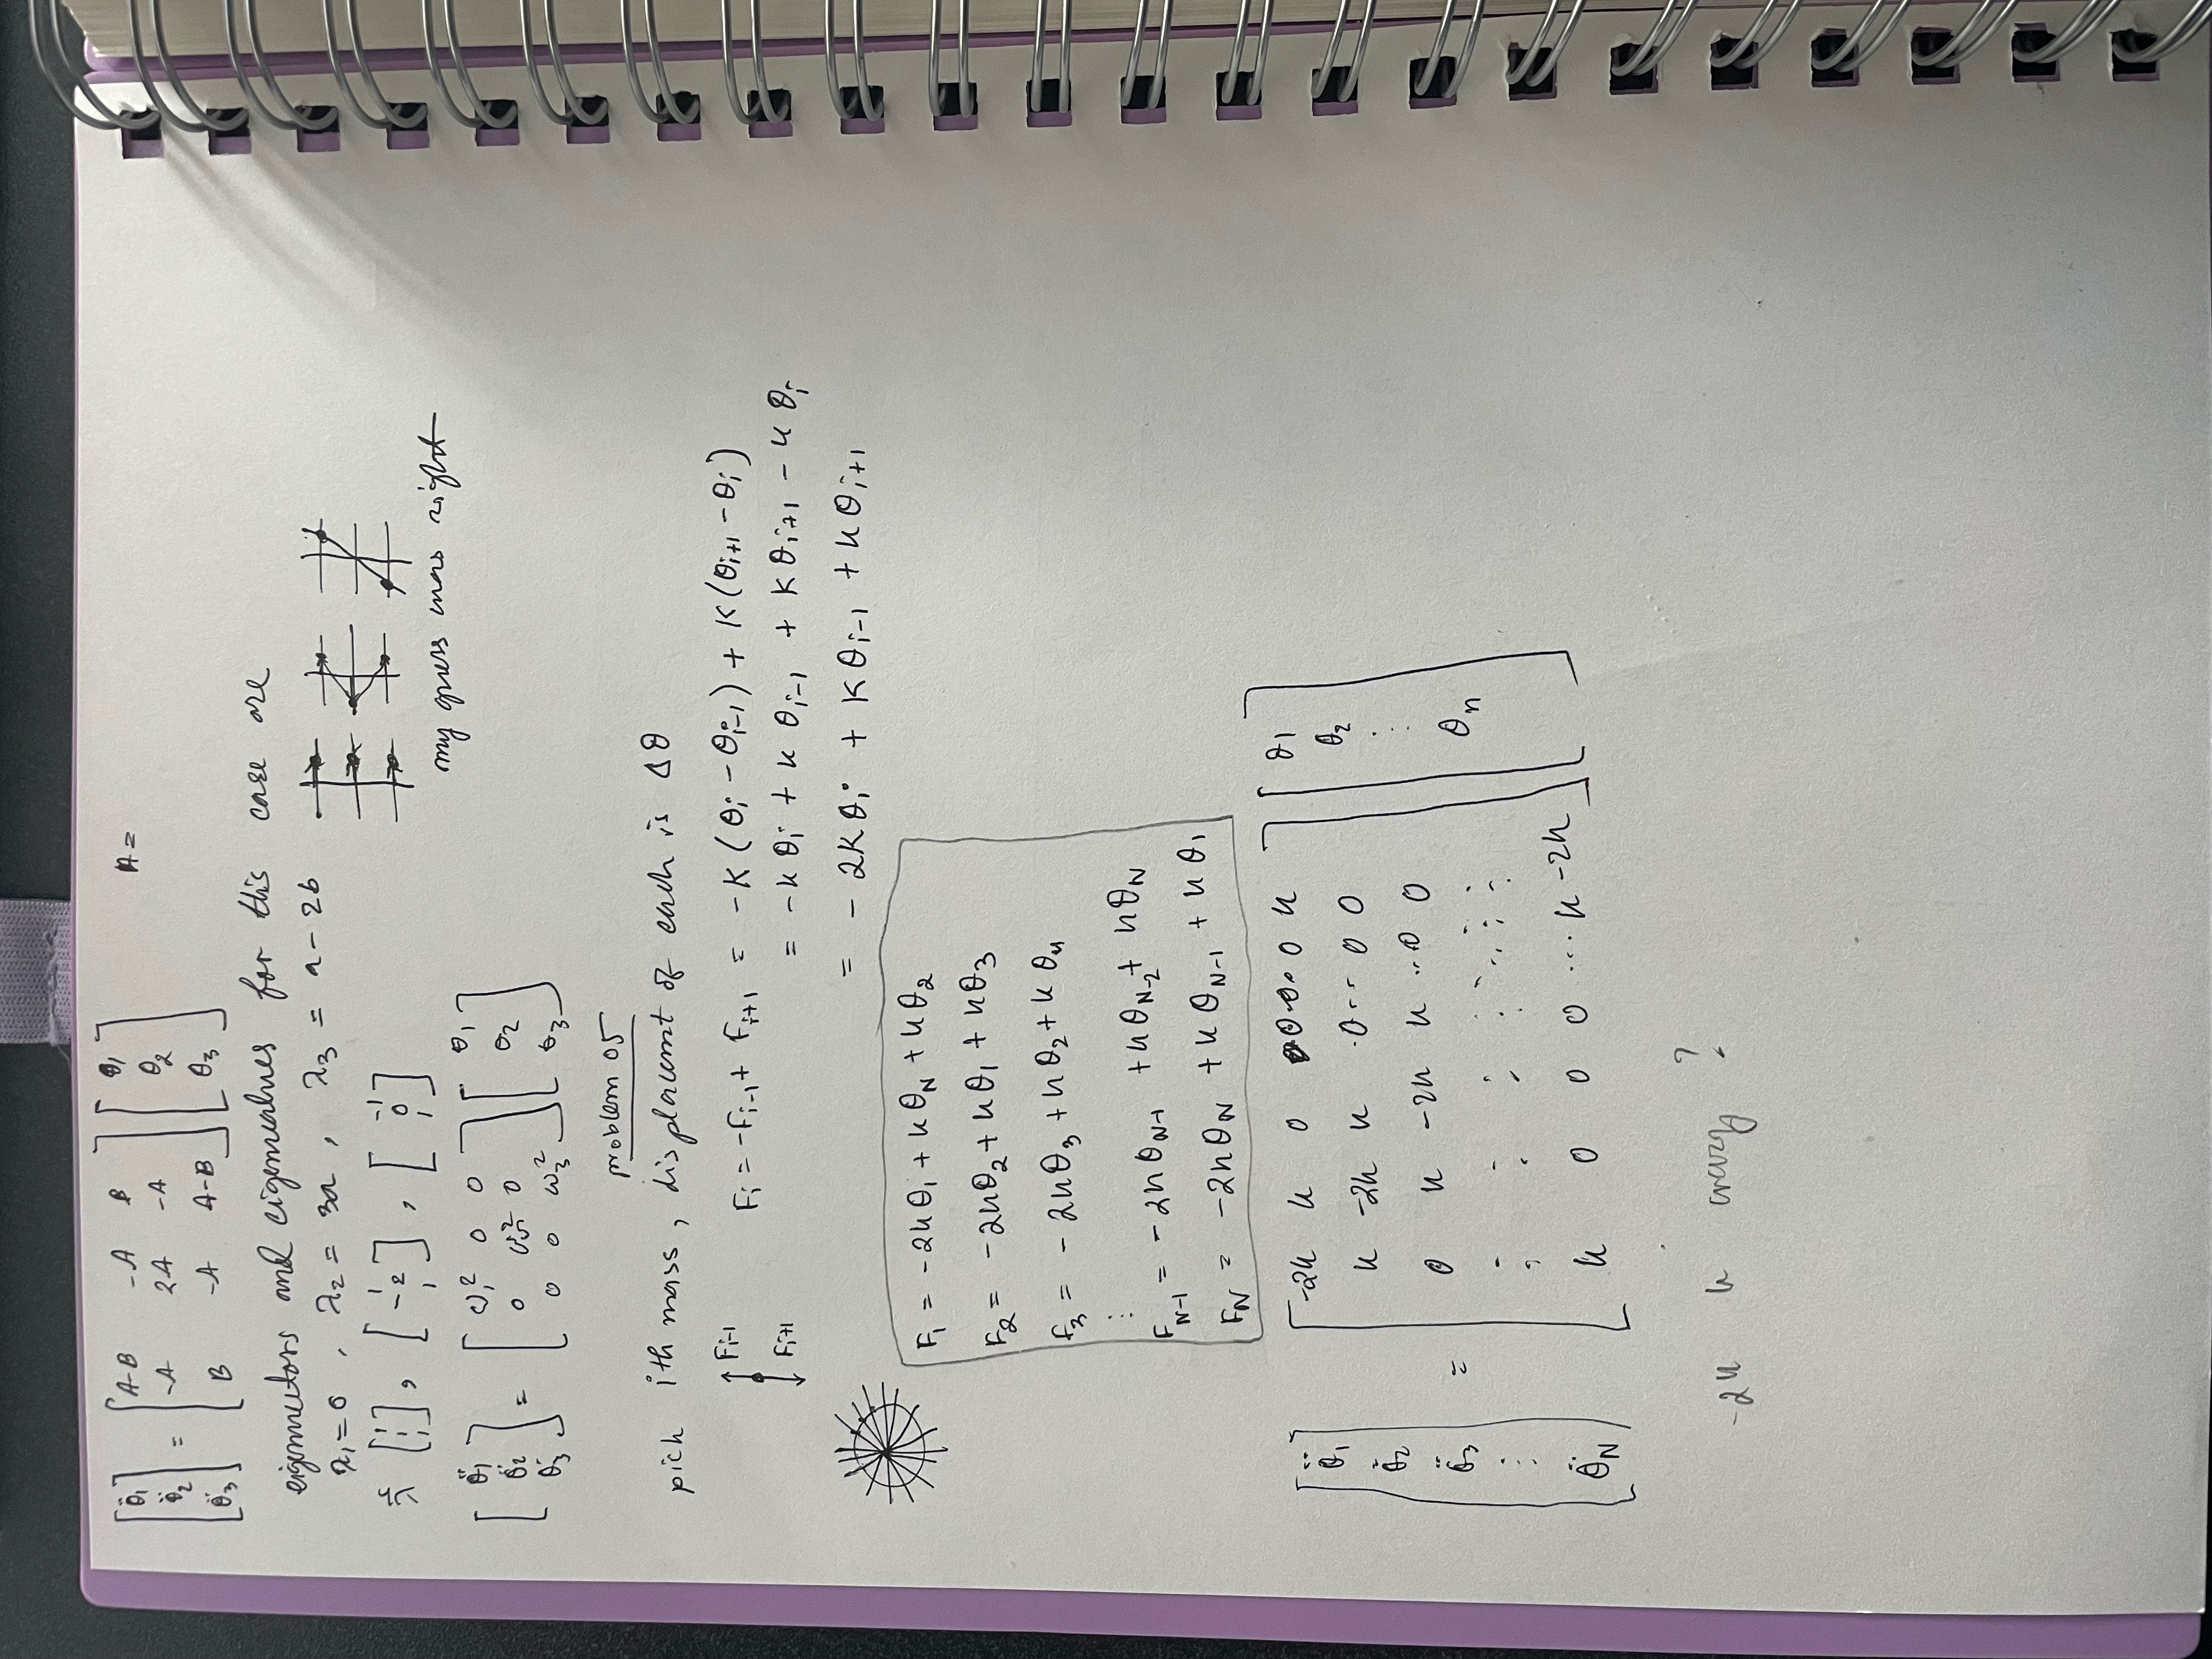 [θ̈₁ θ̈₂ θ̈₃] = [A-B -A B; -A 2A -A; B -A A-B] [θ₁ θ₂ θ₃] A =
eigenvectors and eigenvalues for this case are
λ₁=0 , λ₂ = 3a , λ₃ = a - 2b
[1 1 1], [1 -2 1], [-1 0 1]
my guess was right
[θ̈₁ θ̈₂ θ̈₃] = [ω₁² 0 0; 0 ω₂² 0; 0 0 ω₃²] [θ₁ θ₂ θ₃]
problem 05
pick ith mass, displacemt of each is Δθ
Fᵢ₋₁
Fᵢ₊₁
Fᵢ = -Fᵢ₋₁ + Fᵢ₊₁ = -K(θᵢ - θᵢ₋₁) + K(θᵢ₊₁ - θᵢ)
= -kθᵢ + kθᵢ₋₁ + kθᵢ₊₁ - kθᵢ
= -2kθᵢ + kθᵢ₋₁ + kθᵢ₊₁
F₁ = -2kθ₁ + kθ_N + kθ₂
F₂ = -2kθ₂ + kθ₁ + kθ₃
F₃ = -2kθ₃ + kθ₂ + kθ₄
⋮
F_N-1 = -2kθ_N-1 + kθ_N-2 + kθ_N
F_N = -2kθ_N + kθ_N-1 + kθ₁
[θ̈₁ θ̈₂ θ̈₃ ⋮ θ̈_N] = [-2k k 0 0 0 ... 0 k; k -2k k 0 ... 0 0; 0 k -2k k ... 0 0; ⋮; k 0 0 0 ... k -2k] [θ₁ θ₂ ⋮ θₙ]
-2k k crazy ?